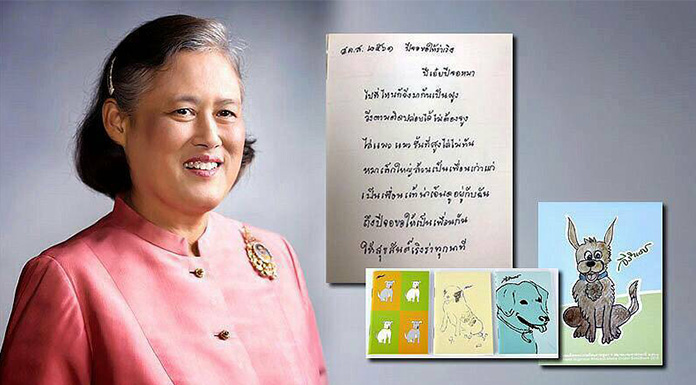 ส.ค.ส. ๒๕๖๑ ปีจอขอให้ร่าเริง
ปีเอ๋ยปีจอหมา
ไปที่ไหนก็วิ่งมากันเป็นฝูง
วิ่งตามติดปล่อยได้ไม่ต้องจูง
ไล่แมว แมวขึ้นที่สูงไล่ไม่ทัน
หมาเล็กใหญ่ล้วนเป็นเพื่อนเก่าแก่
เป็นเพื่อนแท้น่าเอ็นดูอยู่กับฉัน
ถึงปีจอขอให้เป็นเพื่อนกัน
ให้สุขสันต์เริงร่าทุกนาที
สิรินธร